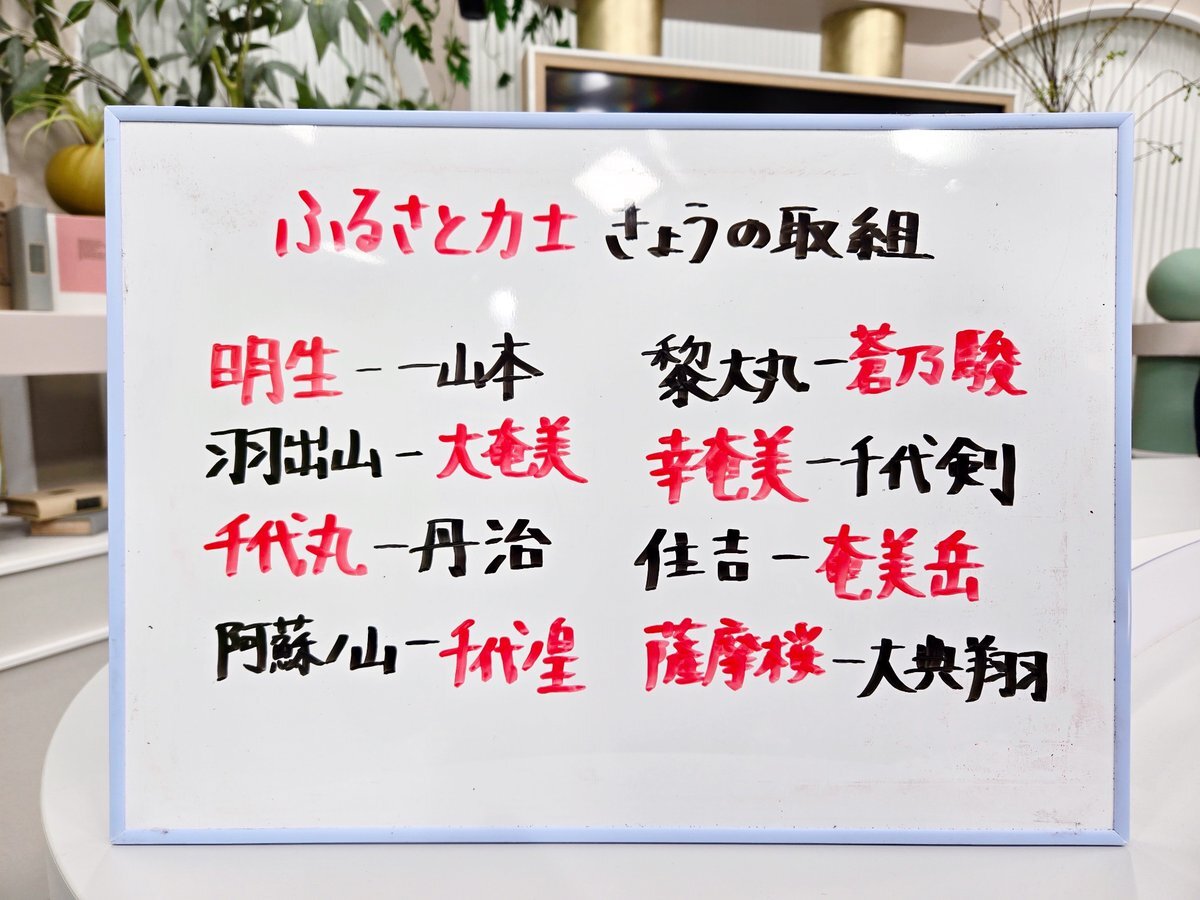 ふるさと力士 きょうの取組
明生ー一山本
羽出山ー大奄美
千代丸ー丹治
阿蘇ノ山ー千代皇
黎大丸ー蒼乃駿
幸奄美ー千代剣
住吉ー奄美岳
薩摩桜ー大典翔